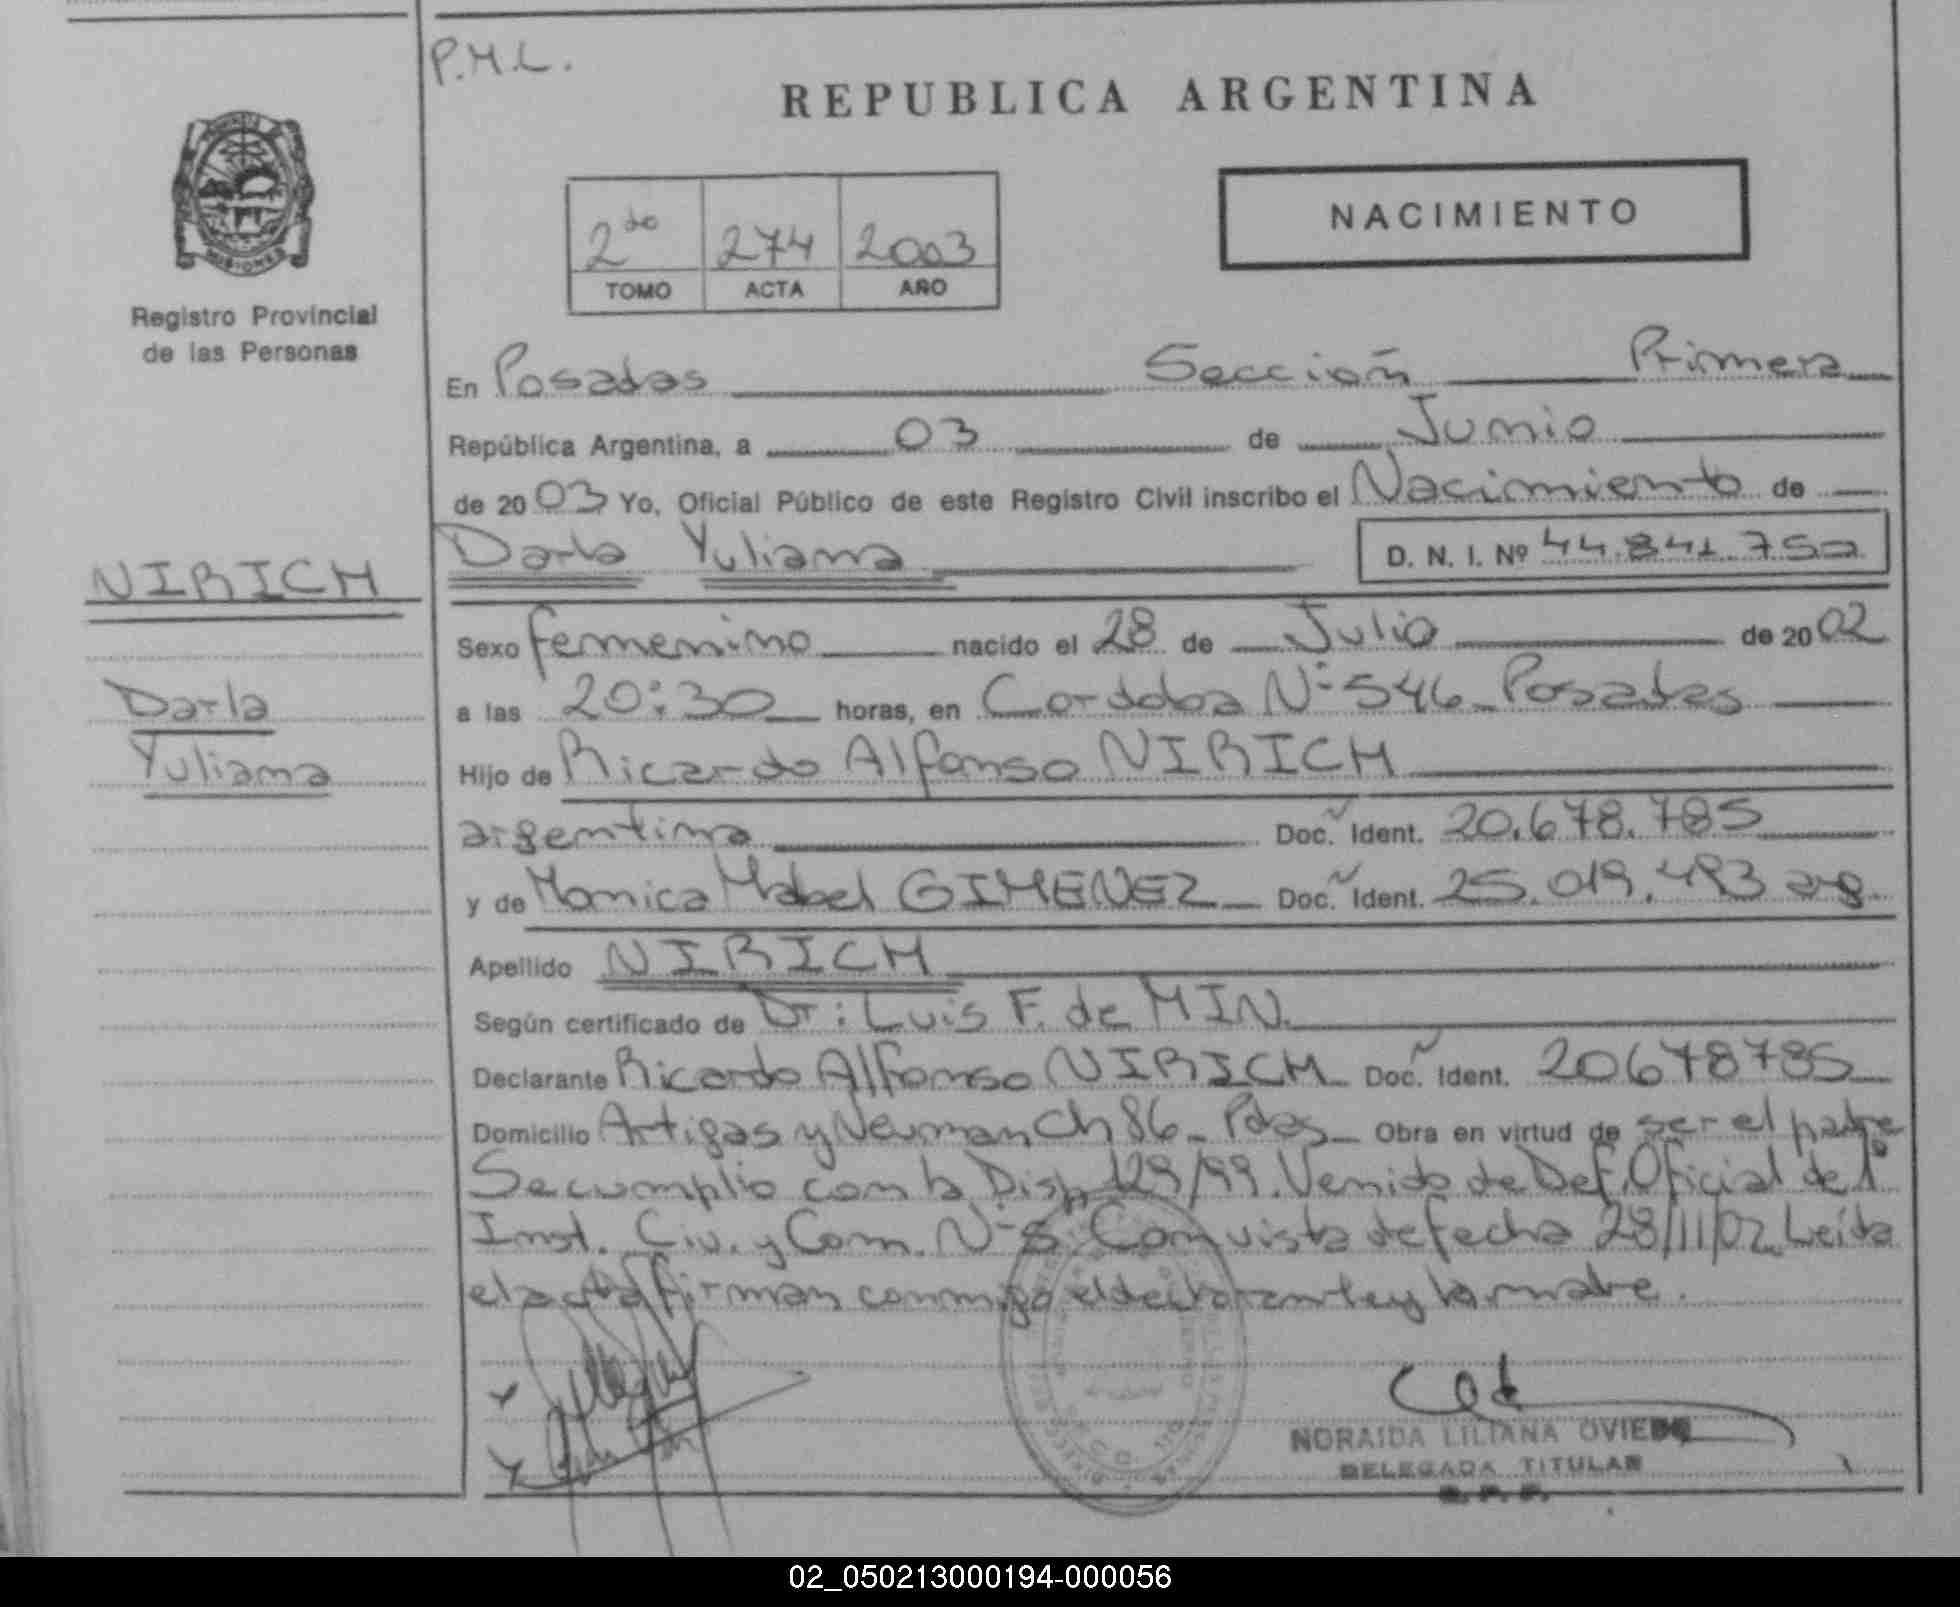 P.M.L.
REPUBLICA ARGENTINA
PROVINCIA
MISIONES
Registro Provincial
de las Personas
2do 274 2003
TOMO ACTA AÑO
NACIMIENTO
En Posadas Sección Primera
República Argentina, a 03 de Junio
de 2003 Yo, Oficial Público de este Registro Civil inscribo el Nacimiento de
Darla Yuliana D. N. I. Nº 44.841.752
NIRICH
Darla
Yuliana
Sexo femenino nacido el 28 de Julio de 2002
a las 20:30 horas, en Cordoba Nº 546 Posadas
Hijo de Ricardo Alfonso NIRICH
argentina Doc. Ident. 20.678.785
y de Monica Mabel GIMENEZ Doc. Ident. 25.019.493 arg.
Apellido NIRICH
Según certificado de Dr: Luis F. de MIN.
Declarante Ricardo Alfonso NIRICH Doc. Ident. 20678785
Domicilio Artigas y Neuman Ch 86 Pdas Obra en virtud de ser el padre
Se cumplio con la Disp. 129/99. Venido de Def. Oficial de 1º
Inst. Civ. y Com. Nº 5. Con vista de fecha 28/11/02 Leída
el acta firman conmigo el declarante y la madre.
NORAIDA LILIANA OVIEDO
DELEGADA TITULAR
R. P. P.
02_050213000194-000056